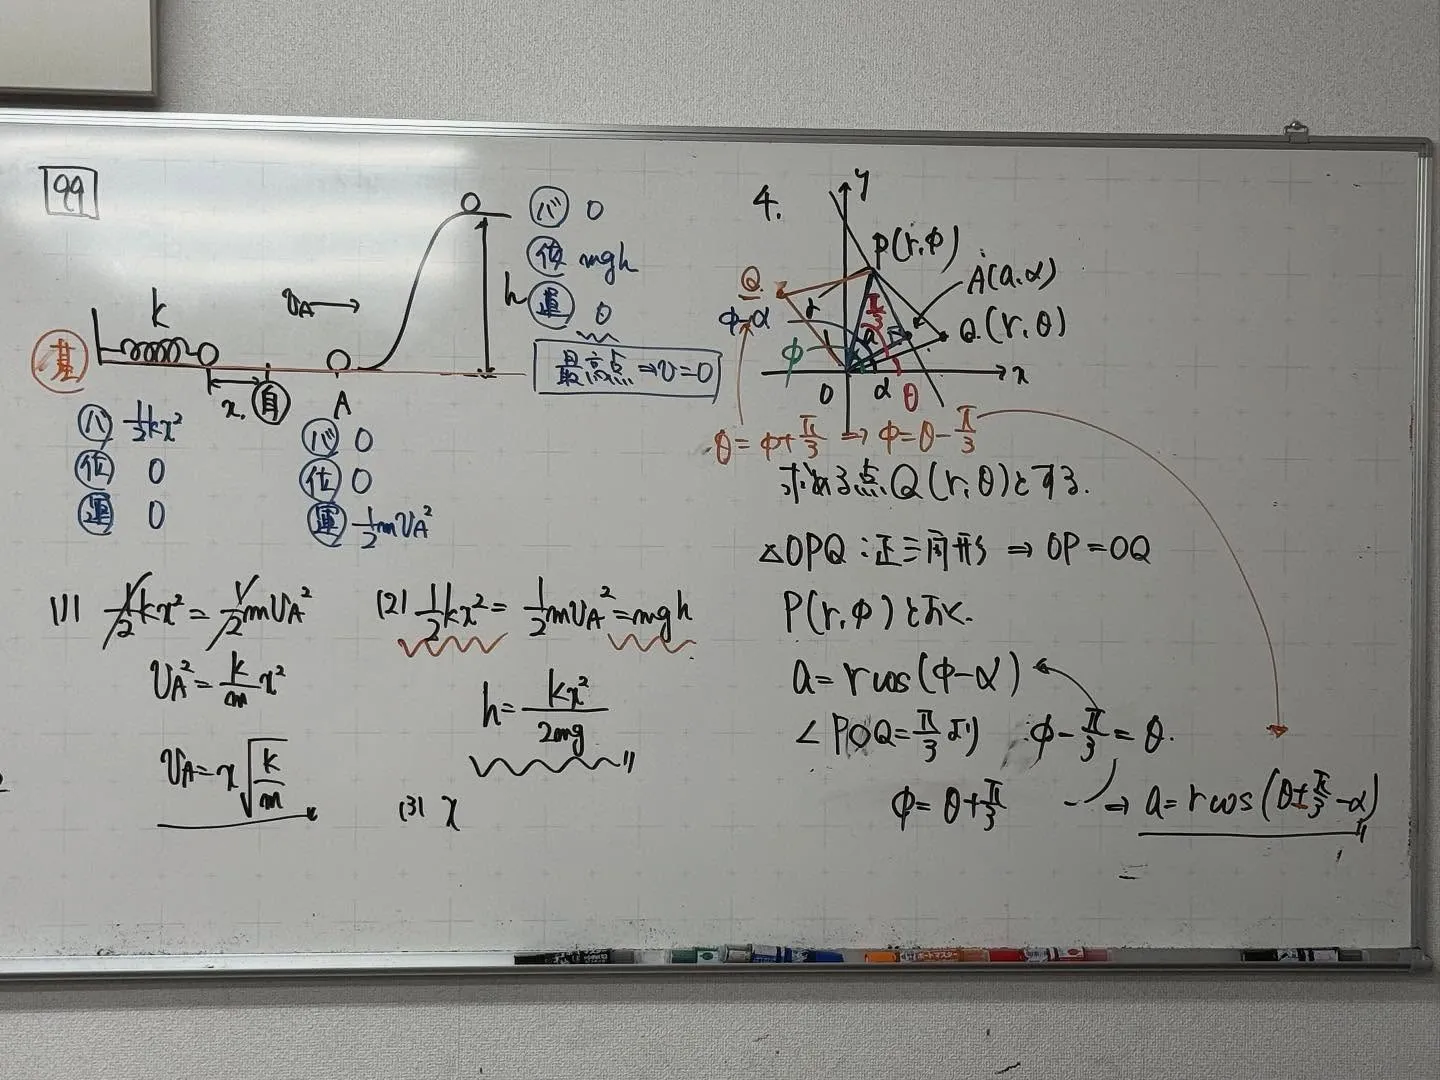 99
k
vA
h
バ 0
位 mgh
運 0
最高点⇒v=0
基
x
自
A
バ 1/2kx²
位 0
運 0
バ 0
位 0
運 1/2mvA²
(1) 1/2kx²=1/2mvA²
vA²=k/m x²
vA=x√(k/m)
(2) 1/2kx²=1/2mvA²=mgh
h=kx²/2mg
(3) x
4.
y
P(r,φ)
A(a,α)
Q(r,θ)
Q
r
π/3
a
φ-α
φ
O
α
θ
x
θ=φ+π/3 ⇒ φ=θ-π/3
求める点Q(r,θ)とする.
△OPQ:正三角形⇒OP=OQ
P(r,φ)とおく.
a=rcos(φ-α)
∠POQ=π/3より φ-π/3=θ.
φ=θ+π/3 ⇒ a=rcos(θ±π/3-α)